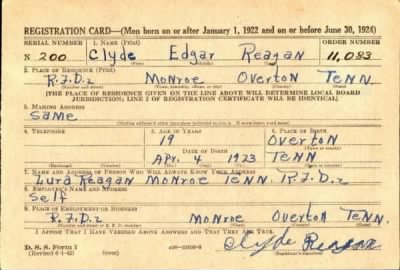 REGISTRATION CARD—(Men born on or after January 1, 1922 and on or before June 30, 1924)
SERIAL NUMBER 1. NAME (Print) ORDER NUMBER
N 200 Clyde Edgar Reagan 11,083
(First) (Middle) (Last)
2. PLACE OF RESIDENCE (Print)
R.F.D.2 Monroe Overton Tenn.
(Number and street) (Town, township, village, or city) (County) (State)
[THE PLACE OF RESIDENCE GIVEN ON THE LINE ABOVE WILL DETERMINE LOCAL BOARD
JURISDICTION; LINE 2 OF REGISTRATION CERTIFICATE WILL BE IDENTICAL]
3. MAILING ADDRESS
Same
[Mailing address if other than place indicated on line 2. If same insert word same]
4. TELEPHONE 5. AGE IN YEARS 6. PLACE OF BIRTH
19 Overton
DATE OF BIRTH (Town or county)
Apr. 4 1923 Tenn
(Exchange) (Number) (Mo.) (Day) (Yr.) (State or country)
7. NAME AND ADDRESS OF PERSON WHO WILL ALWAYS KNOW YOUR ADDRESS
Lura Reagan Monroe Tenn. R.F.D.2
8. EMPLOYER'S NAME AND ADDRESS
Self
9. PLACE OF EMPLOYMENT OR BUSINESS
R.F.D.2 Monroe Overton Tenn.
(Number and street or R. F. D. number) (Town) (County) (State)
I AFFIRM THAT I HAVE VERIFIED ABOVE ANSWERS AND THAT THEY ARE TRUE.
D. S. S. Form 1
(Revised 6-1-42) (over) Clyde Reagan
(Registrant's signature)